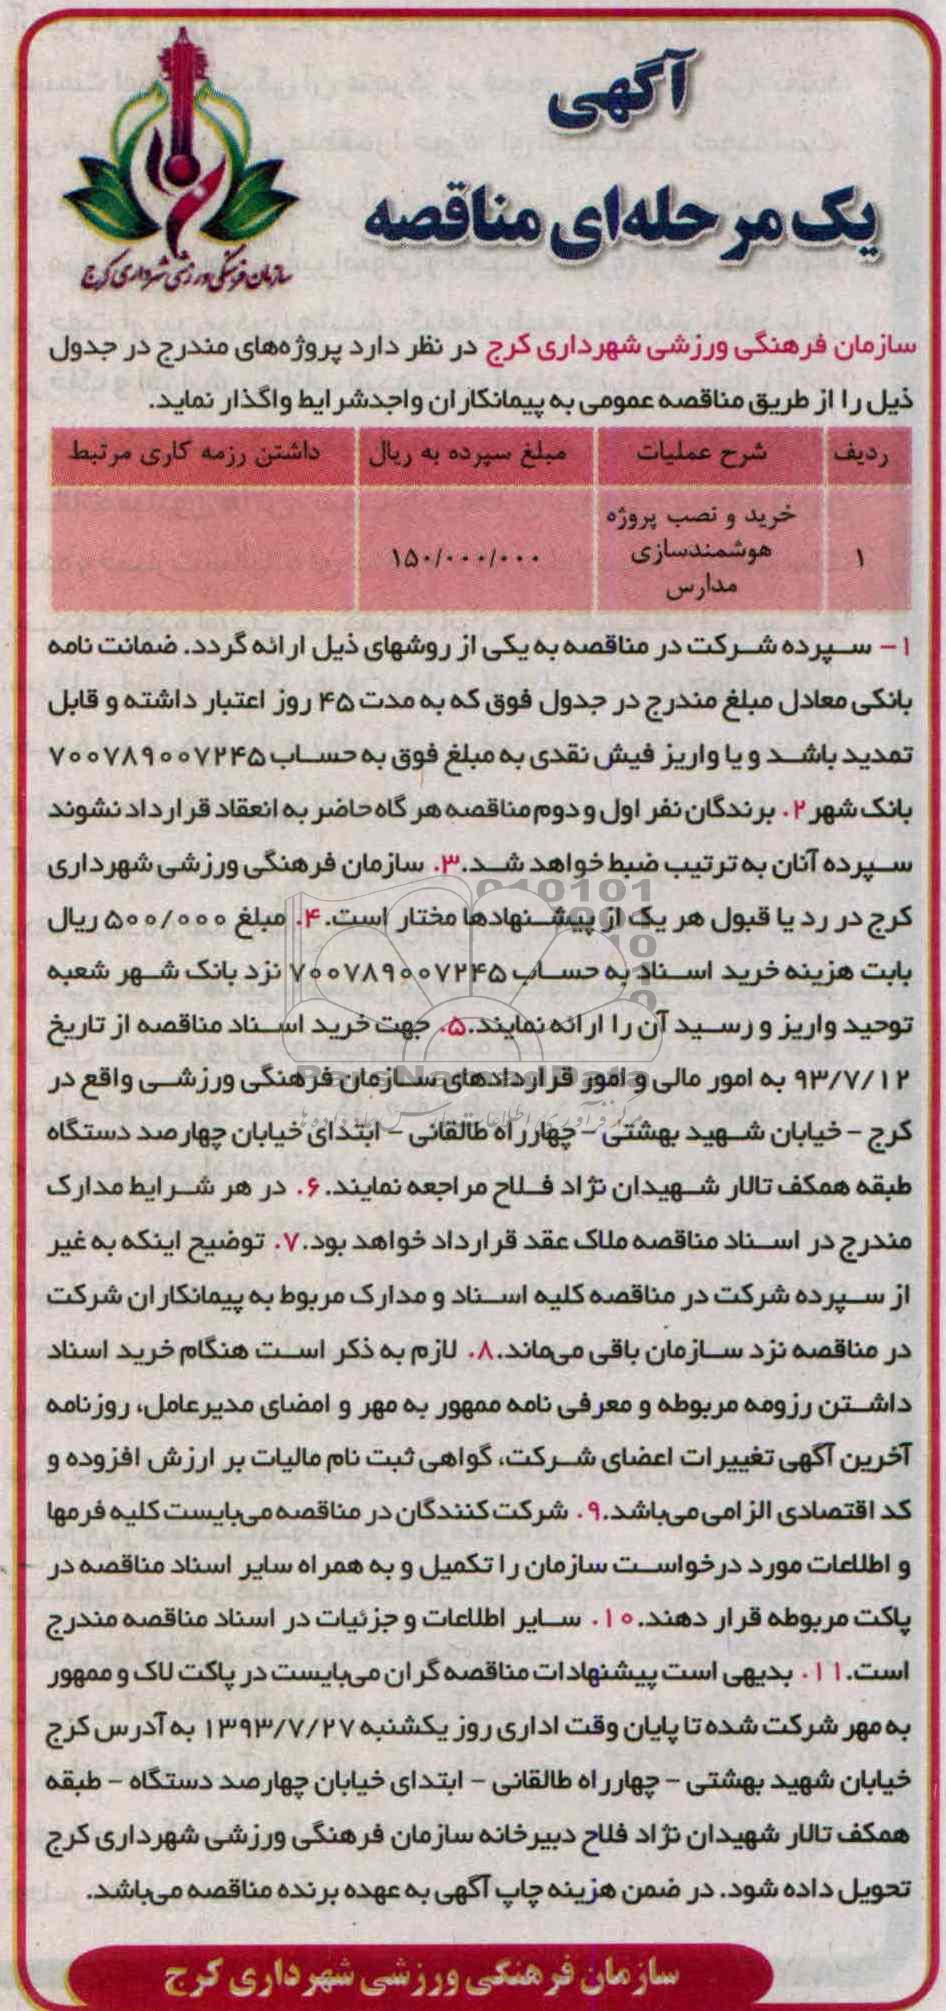 آگهی
یک مرحله‌ای مناقصه
سازمان فرهنگی ورزشی شهرداری کرج
سازمان فرهنگی ورزشی شهرداری کرج در نظر دارد پروژه‌های مندرج در جدول
ذیل را از طریق مناقصه عمومی به پیمانکاران واجدشرایط واگذار نماید.
ردیف شرح عملیات مبلغ سپرده به ریال داشتن رزمه کاری مرتبط
۱ خرید و نصب پروژه هوشمندسازی مدارس ۱۵۰/۰۰۰/۰۰۰
۱- سپرده شرکت در مناقصه به یکی از روشهای ذیل ارائه گردد. ضمانت نامه
بانکی معادل مبلغ مندرج در جدول فوق که به مدت ۴۵ روز اعتبار داشته و قابل
تمدید باشد و یا واریز فیش نقدی به مبلغ فوق به حساب ۷۰۰۷۸۹۰۰۷۲۴۵
بانک شهر ۲. برندگان نفر اول و دوم مناقصه هر گاه حاضر به انعقاد قرارداد نشوند
سپرده آنان به ترتیب ضبط خواهد شد.۳. سازمان فرهنگی ورزشی شهرداری
کرج در رد یا قبول هر یک از پیشنهادها مختار است.۴. مبلغ ۵۰۰/۰۰۰ ریال
بابت هزینه خرید اسناد به حساب ۷۰۰۷۸۹۰۰۷۲۴۵ نزد بانک شهر شعبه
توحید واریز و رسید آن را ارائه نمایند.۵. جهت خرید اسناد مناقصه از تاریخ
۹۳/۷/۱۲ به امور مالی و امور قراردادهای سازمان فرهنگی ورزشی واقع در
کرج – خیابان شهید بهشتی – چهارراه طالقانی – ابتدای خیابان چهارصد دستگاه
طبقه همکف تالار شهیدان نژاد فلاح مراجعه نمایند.۶. در هر شرایط مدارک
مندرج در اسناد مناقصه ملاک عقد قرارداد خواهد بود.۷. توضیح اینکه به غیر
از سپرده شرکت در مناقصه کلیه اسناد و مدارک مربوط به پیمانکاران شرکت
در مناقصه نزد سازمان باقی می‌ماند.۸. لازم به ذکر است هنگام خرید اسناد
داشتن رزومه مربوطه و معرفی نامه ممهور به مهر و امضای مدیرعامل، روزنامه
آخرین آگهی تغییرات اعضای شرکت، گواهی ثبت نام مالیات بر ارزش افزوده و
کد اقتصادی الزامی می‌باشد.۹. شرکت کنندگان در مناقصه می‌بایست کلیه فرمها
و اطلاعات مورد درخواست سازمان را تکمیل و به همراه سایر اسناد مناقصه در
پاکت مربوطه قرار دهند.۱۰. سایر اطلاعات و جزئیات در اسناد مناقصه مندرج
است.۱۱. بدیهی است پیشنهادات مناقصه گران می‌بایست در پاکت لاک و ممهور
به مهر شرکت شده تا پایان وقت اداری روز یکشنبه ۱۳۹۳/۷/۲۷ به آدرس کرج
خیابان شهید بهشتی – چهارراه طالقانی – ابتدای خیابان چهارصد دستگاه – طبقه
همکف تالار شهیدان نژاد فلاح دبیرخانه سازمان فرهنگی ورزشی شهرداری کرج
تحویل داده شود. در ضمن هزینه چاپ آگهی به عهده برنده مناقصه می‌باشد.
سازمان فرهنگی ورزشی شهرداری کرج